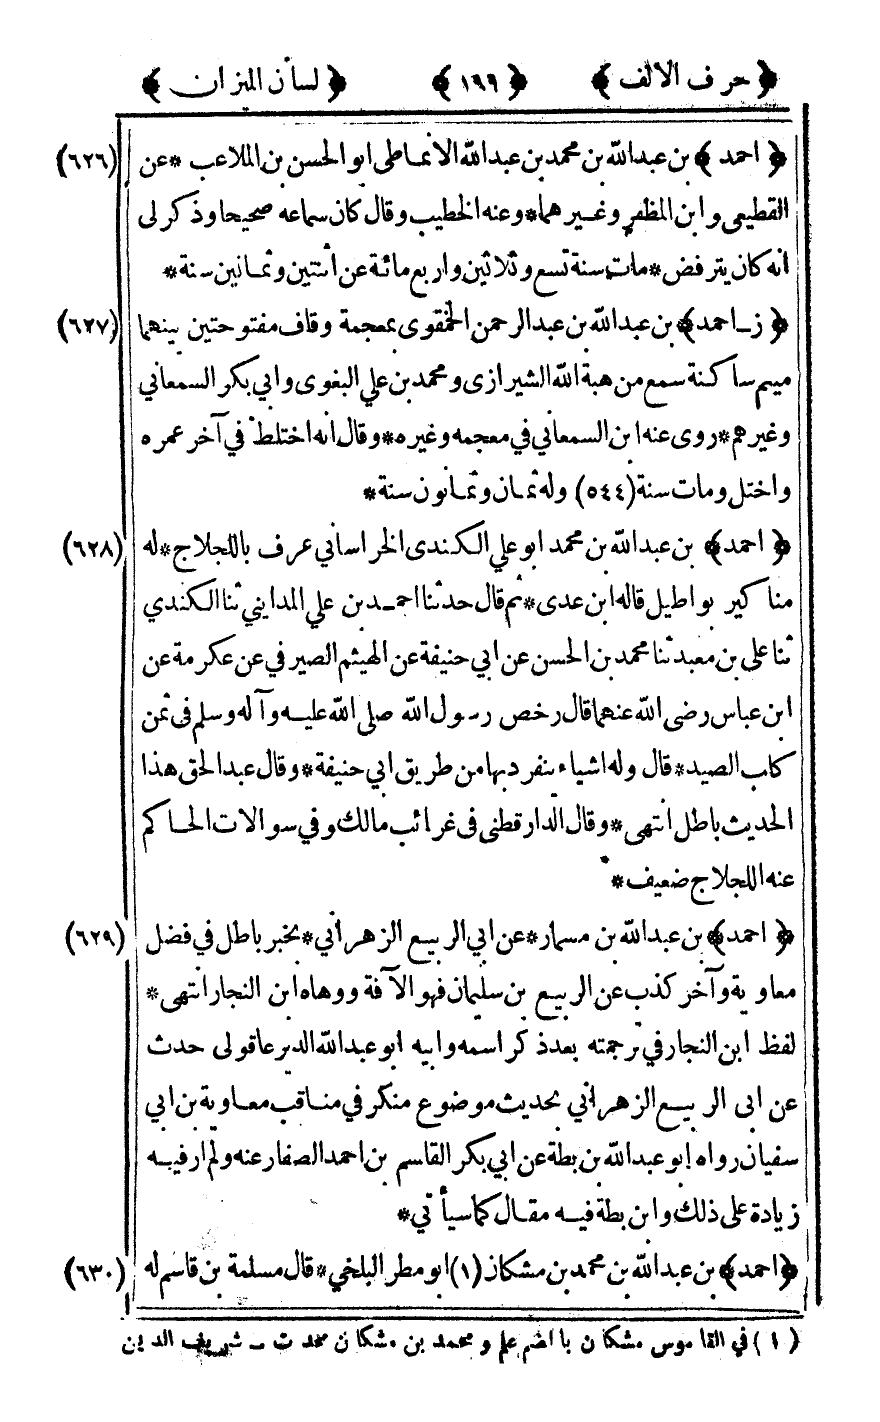 ﴿ حرف الالف ﴾ ﴿ ١٩٩ ﴾ ﴿ لسان الميزان ﴾
﴿ احمد ﴾ بن عبدالله بن محمد بن عبدالله الانماطى ابو الحسن بن الملاعب *عن (٦٢٦)
القطيعى و ابن المظفر وغيرهما*وعنه الخطيب وقال كان سماعه صحيحا وذكر لى
انه كان يترفض*مات سنة تسع وثلاثين واربع مائة عن اثنتين وثمانين سنة*
﴿ ز-احمد﴾ بن عبدالله بن عبدالرحمن الخمقوى بمعجمة وقاف مفتوحتين بينهما (٦٢٧)
ميم ساكنة سمع من هبة الله الشيرازى ومحمد بن علي البغوى وابي بكر السمعاني
وغيرهم*روى عنه ابن السمعاني في معجمه وغيره*وقال انه اختلط في آخر عمره
واختل ومات سنة (٥٤٤) وله ثمان وثمانون سنة*
﴿ احمد﴾ بن عبدالله بن محمد ابو علي الكندى الخراساني عرف باللجلاج*له (٦٢٨)
مناكير بواطيل قاله ابن عدى*ثم قال حدثنا احمد بن علي المدايني ثنا الكندي
ثنا على بن معبد ثنا محمد بن الحسن عن ابي حنيفة عن الهيثم الصيرفي عن عكرمة عن
ابن عباس رضى الله عنهما قال رخص رسول الله صلى الله عليه وآله وسلم فى ثمن
كلب الصيد*قال وله اشياء ينفرد بها من طريق ابي حنيفة*وقال عبدالحق هذا
الحديث باطل انتهى*وقال الدارقطنى فى غرائب مالك وفي سوالات الحاكم
عنه اللجلاج ضعيف*
﴿ احمد﴾ بن عبدالله بن مسمار*عن ابي الربيع الزهراني*بخبر باطل في فضل (٦٢٩)
معاوية وآخر كذب عن الربيع بن سليمان فهو الآفة ووهاه ابن النجار انتهى*
لفظ ابن النجار في ترجمته بعد ذكر اسمه وابيه ابو عبدالله الديرعاقولى حدث
عن ابى الربيع الزهراني بحديث موضوع منكر في مناقب معاوية بن ابي
سفيان رواه ابو عبدالله بن بطة عن ابي بكر القاسم بن احمد الصفار عنه ولم ار فيه
زيادة على ذلك وابن بطة فيه مقال كما سيأتي*
﴿احمد﴾ بن عبدالله بن محمد بن مشكان (١) ابو مطر البلخي*قال مسلمة بن قاسم له (٦٣٠)
( ١ ) في القاموس مشكان بالضم علم و محمد بن مشكان محدث ـ شريف الدين